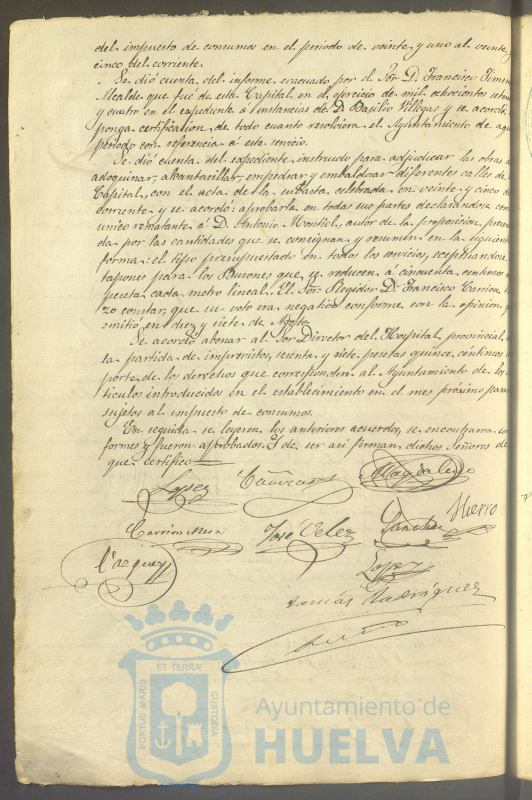 del impuesto de consumos en el periodo de veinte y uno al veinte y
cinco del corriente.
Se dió cuenta del informe evacuado por el Sor D. Francisco Jimen
Alcalde que fué de esta Capital en el ejercicio de mil ochocientos seten
y cuatro en el expediente á instancias de D. Basilio Villegas y se acordó
ponga certificacion de todo cuanto resolviera el Ayuntamiento de aqu
periodo con referencia á este servicio.
Se dió cuenta del expediente instruido para adjudicar las obras d
adoquinar, alcantarillar, empedrar y embaldosar diferentes calles de l
Capital, con el acta de la subasta celebrada en veinte y cinco d
corriente y se acordó: aprobarla en todas sus partes declarándose com
unico rematante á D. Antonio Montiel, autor de la proposicion presen
da por las cantidades que se consignan y resumen en la siguient
forma: el tipo presupuestado en todos los servicios, exceptuandose
tapones para los Buzones que se reducen á cincuenta centimos d
peseta cada metro lineal. El Sor Regidor D. Francisco Carrion h
zo constar, que su voto era negativo conforme con la opinion q
emitió en diez y siete de Agosto.
Se acordó abonar al Sor Director del Hospital provincial, d
la partida de imprevistos, sesenta y siete pesetas quince centimos im
porte de los derechos que corresponden al Ayuntamiento de los
ticulos introducidos en el establecimiento en el mes próximo pasa
sujetos al impuesto de consumos.
En seguida se leyeron los anteriores acuerdos, se encontraron co
formes y fueron aprobados. Y de ser así firman dichos Señores de
que certifico=
Lopez
Magdaleno
Carrion Mesa
José Velez
Sanchez
Hierro
Vazquez
Lopez
Tomás Rodriguez
PORTUS MARIS
ET TERRÆ
CUSTODIA
Ayuntamiento de
HUELVA